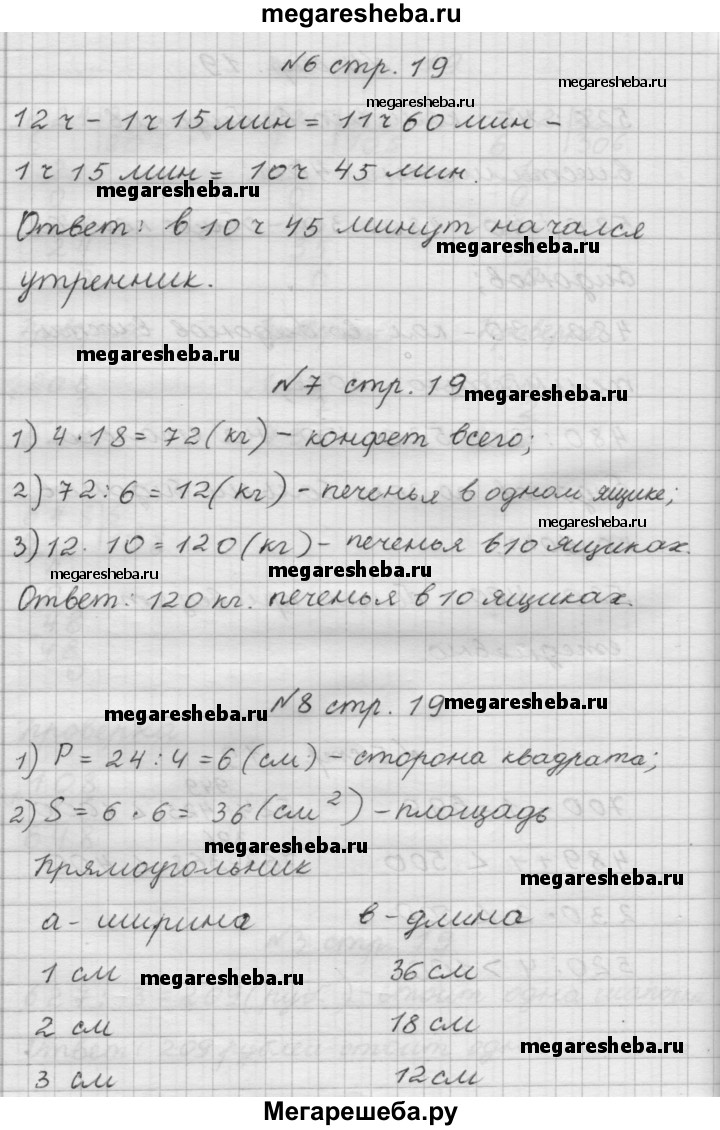 megaresheba.ru
№6 стр. 19
megaresheba.ru
megaresheba.ru
12 ч - 1 ч 15 мин = 11 ч 60 мин -
1 ч 15 мин = 10 ч 45 мин.
megaresheba.ru
Ответ: в 10 ч 45 минут начался
megaresheba.ru
утренник.
megaresheba.ru
№7 стр. 19
megaresheba.ru
1) 4 · 18 = 72 (кг) - конфет всего;
2) 72 : 6 = 12 (кг) - печенья в одном ящике;
megaresheba.ru
3) 12 · 10 = 120 (кг) - печенья в 10 ящиках.
megaresheba.ru
megaresheba.ru
Ответ: 120 кг. печенья в 10 ящиках.
№8 стр. 19
megaresheba.ru
megaresheba.ru
1) P = 24 : 4 = 6 (см) - сторона квадрата;
2) S = 6 · 6 = 36 (см²) - площадь
megaresheba.ru
Прямоугольник
megaresheba.ru
а - ширина в - длина
1 см megaresheba.ru 36 см
2 см 18 см
megaresheba.ru
3 см 12 см
Мегарешеба.ру